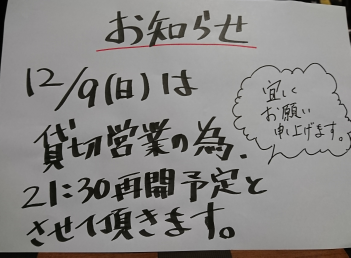 お知らせ
12/9(日)は
貸切営業の為、
21:30再開予定と
させて頂きます。
宜しく
お願い
申し上げます。